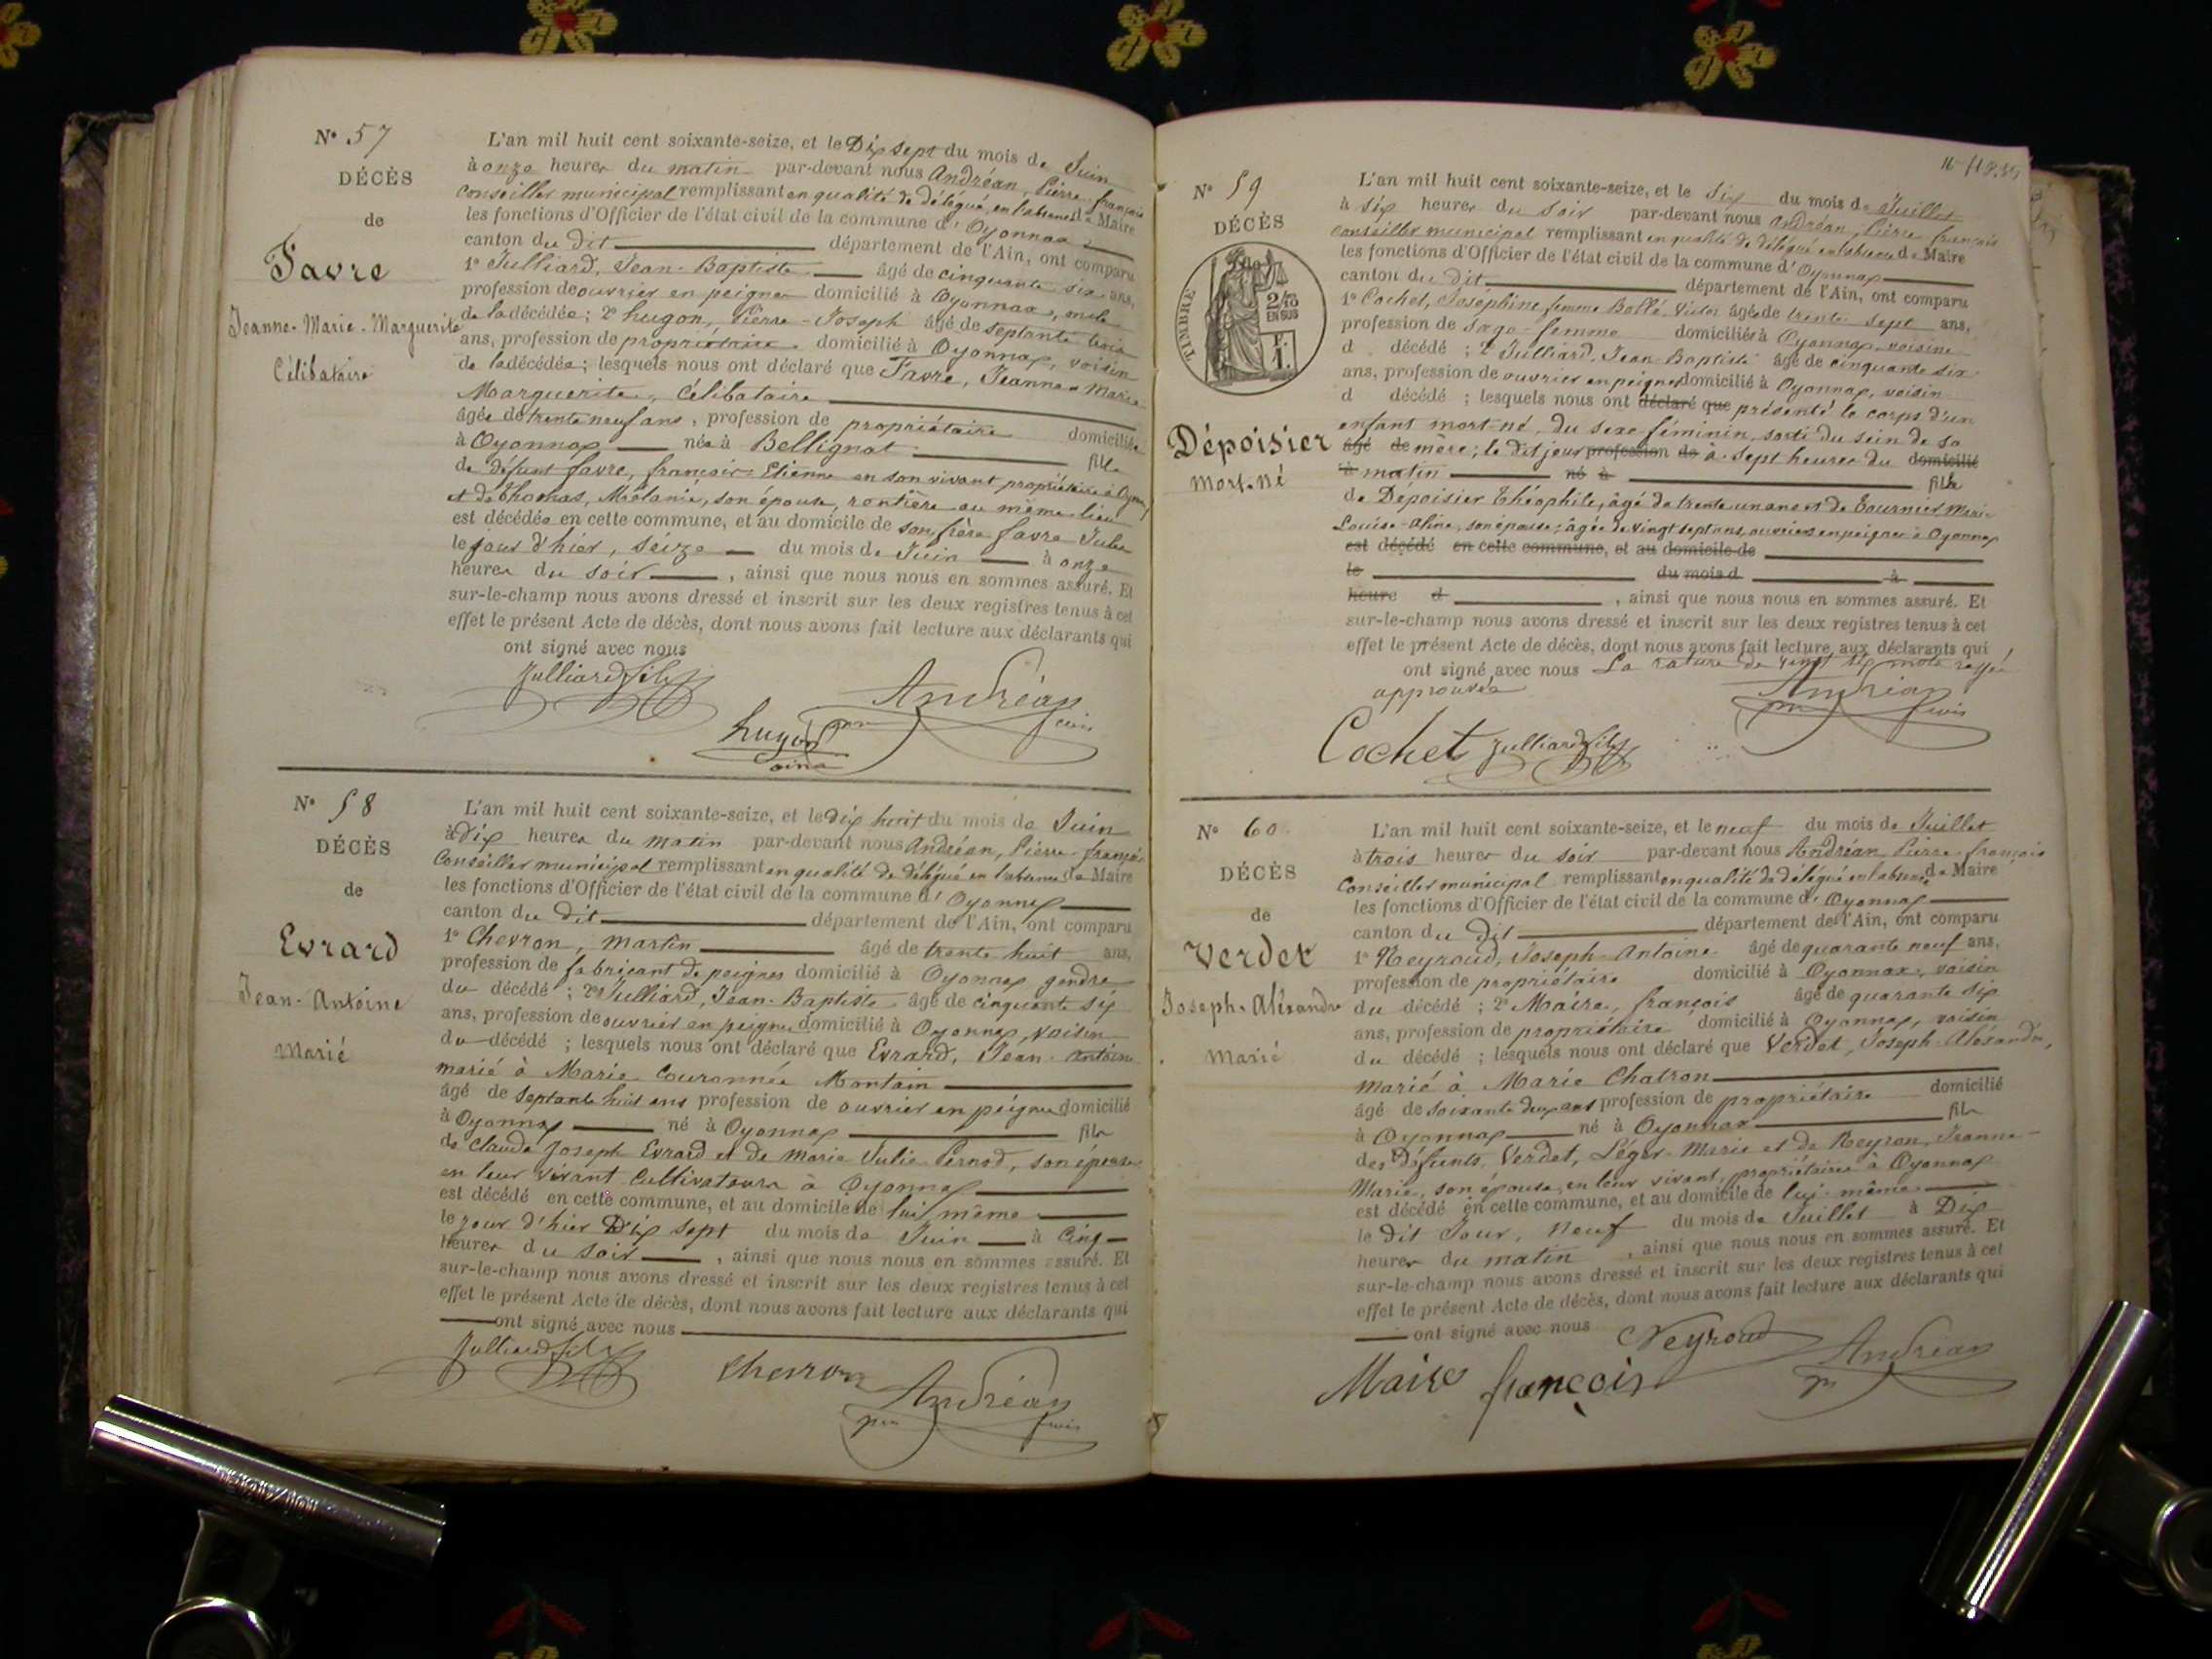 N° 57
DÉCÈS
de
Favre
Jeanne-Marie-Marguerite
Célibataire
L'an mil huit cent soixante-seize, et le Dix sept du mois de Juin
à onze heures du matin par-devant nous Andréan, Pierre françois
Conseiller municipal remplissant en qualité de délégué en l'absence de Maire
les fonctions d'Officier de l'état civil de la commune d'Oyonnax
canton du dit département de l'Ain, ont comparu
1° Julliard, Jean-Baptiste âgé de cinquante six ans,
profession de ouvrier en peignes domicilié à Oyonnax, oncle
de la décédée ; 2° hugon, Pierre-Joseph âgé de septante trois
ans, profession de propriétaire domicilié à Oyonnax, voisin
de la décédée ; lesquels nous ont déclaré que Favre, Jeanne Marie
Marguerite, Célibataire
âgée de trente neuf ans, profession de propriétaire domiciliée
à Oyonnax née à Bellignat fille
de défunt favre, françois-Etienne en son vivant propriétaire à Oyonnax,
et de Thomas, Mélanie, son épouse, rentière au même lieu
est décédée en cette commune, et au domicile de son frère favre Jules
le jour d'hier, seize du mois de Juin à onze
heures du soir, ainsi que nous nous en sommes assuré. Et
sur-le-champ nous avons dressé et inscrit sur les deux registres tenus à cet
effet le présent Acte de décès, dont nous avons fait lecture aux déclarants qui
ont signé avec nous
Julliard fils
Andréan
hugon
N° 58
DÉCÈS
de
Evrard
Jean-Antoine
Marié
L'an mil huit cent soixante-seize, et le dix huit du mois de Juin
à dix heures du matin par-devant nous Andréan, Pierre françois
Conseiller municipal remplissant en qualité de délégué en l'absence de Maire
les fonctions d'Officier de l'état civil de la commune d'Oyonnax
canton du dit département de l'Ain, ont comparu
1° Chevron, Martin âgé de trente huit ans,
profession de fabricant de peignes domicilié à Oyonnax gendre
du décédé ; 2° Julliard, Jean-Baptiste âgé de cinquante six
ans, profession de ouvrier en peignes domicilié à Oyonnax, voisin
du décédé ; lesquels nous ont déclaré que Evrard, Jean-Antoine
marié à Marie Couronnée Montain
âgé de septante huit ans profession de ouvrier en peignes domicilié
à Oyonnax né à Oyonnax fils
de Claude Joseph Evrard et de Marie Julie Pernod, son épouse
en leur vivant Cultivateurs à Oyonnax
est décédé en cette commune, et au domicile de lui même
le jour d'hier Dix sept du mois de Juin à cinq
heures du soir, ainsi que nous nous en sommes assuré. Et
sur-le-champ nous avons dressé et inscrit sur les deux registres tenus à cet
effet le présent Acte de décès, dont nous avons fait lecture aux déclarants qui
ont signé avec nous
Julliard fils
Chevron
Andréan
N° 59
DÉCÈS
TIMBRE
2/10
EN SUS
F.
1.
Dépoisier
Mort-né
L'an mil huit cent soixante-seize, et le six du mois de Juillet
à six heures du soir par-devant nous Andréan, Pierre françois
Conseiller municipal remplissant en qualité de délégué en l'absence de Maire
les fonctions d'Officier de l'état civil de la commune d'Oyonnax
canton du dit département de l'Ain, ont comparu
1° Cochet, Joséphine femme Bollé Victor âgée de trente sept ans,
profession de sage-femme domiciliée à Oyonnax, voisine
d décédé ; 2° Julliard, Jean Baptiste âgé de cinquante six
ans, profession de ouvrier en peignes domicilié à Oyonnax, voisin
d décédé ; lesquels nous ont déclaré que présenté le corps d'un
enfant mort-né, du sexe féminin, sorti du sein de sa
âgé de mère ; le dit jour profession de à sept heures du domicilié
à matin né à fille
de Dépoisier Théophile, âgé de trente un ans et de Tournier Marie
Louise-Aline, son épouse, âgée de vingt sept ans, ouvriers en peignes à Oyonnax
est décédé en cette commune, et au domicile de
le du mois d à
heure d, ainsi que nous nous en sommes assuré. Et
sur-le-champ nous avons dressé et inscrit sur les deux registres tenus à cet
effet le présent Acte de décès, dont nous avons fait lecture aux déclarants qui
ont signé avec nous La rature de vingt six mots rayés
approuvée
Andréan
Cochet Julliard fils
N° 60
DÉCÈS
de
Verdet
Joseph-Aléxandre
Marié
L'an mil huit cent soixante-seize, et le neuf du mois de Juillet
à trois heures du soir par-devant nous Andréan Pierre françois
Conseiller municipal remplissant en qualité de délégué en l'absence de Maire
les fonctions d'Officier de l'état civil de la commune d'Oyonnax
canton du Dit département de l'Ain, ont comparu
1° Neyroud, Joseph-Antoine âgé de quarante neuf ans,
profession de propriétaire domicilié à Oyonnax, voisin
du décédé ; 2° Maire, françois âgé de quarante six
ans, profession de propriétaire domicilié à Oyonnax, voisin
du décédé ; lesquels nous ont déclaré que Verdet, Joseph-Aléxandre,
marié à Marie Chatron
âgé de soixante deux ans profession de propriétaire domicilié
à Oyonnax né à Oyonnax fils
des défunts, Verdet, Léger-Marie et de Neyron, Jeanne-
Marie, son épouse, en leur vivant, propriétaires à Oyonnax
est décédé en cette commune, et au domicile de lui-même
le dit Jour, neuf du mois de Juillet à Dix
heures du matin, ainsi que nous nous en sommes assuré. Et
sur-le-champ nous avons dressé et inscrit sur les deux registres tenus à cet
effet le présent Acte de décès, dont nous avons fait lecture aux déclarants qui
ont signé avec nous
Neyroud
Andréan
Maire françois